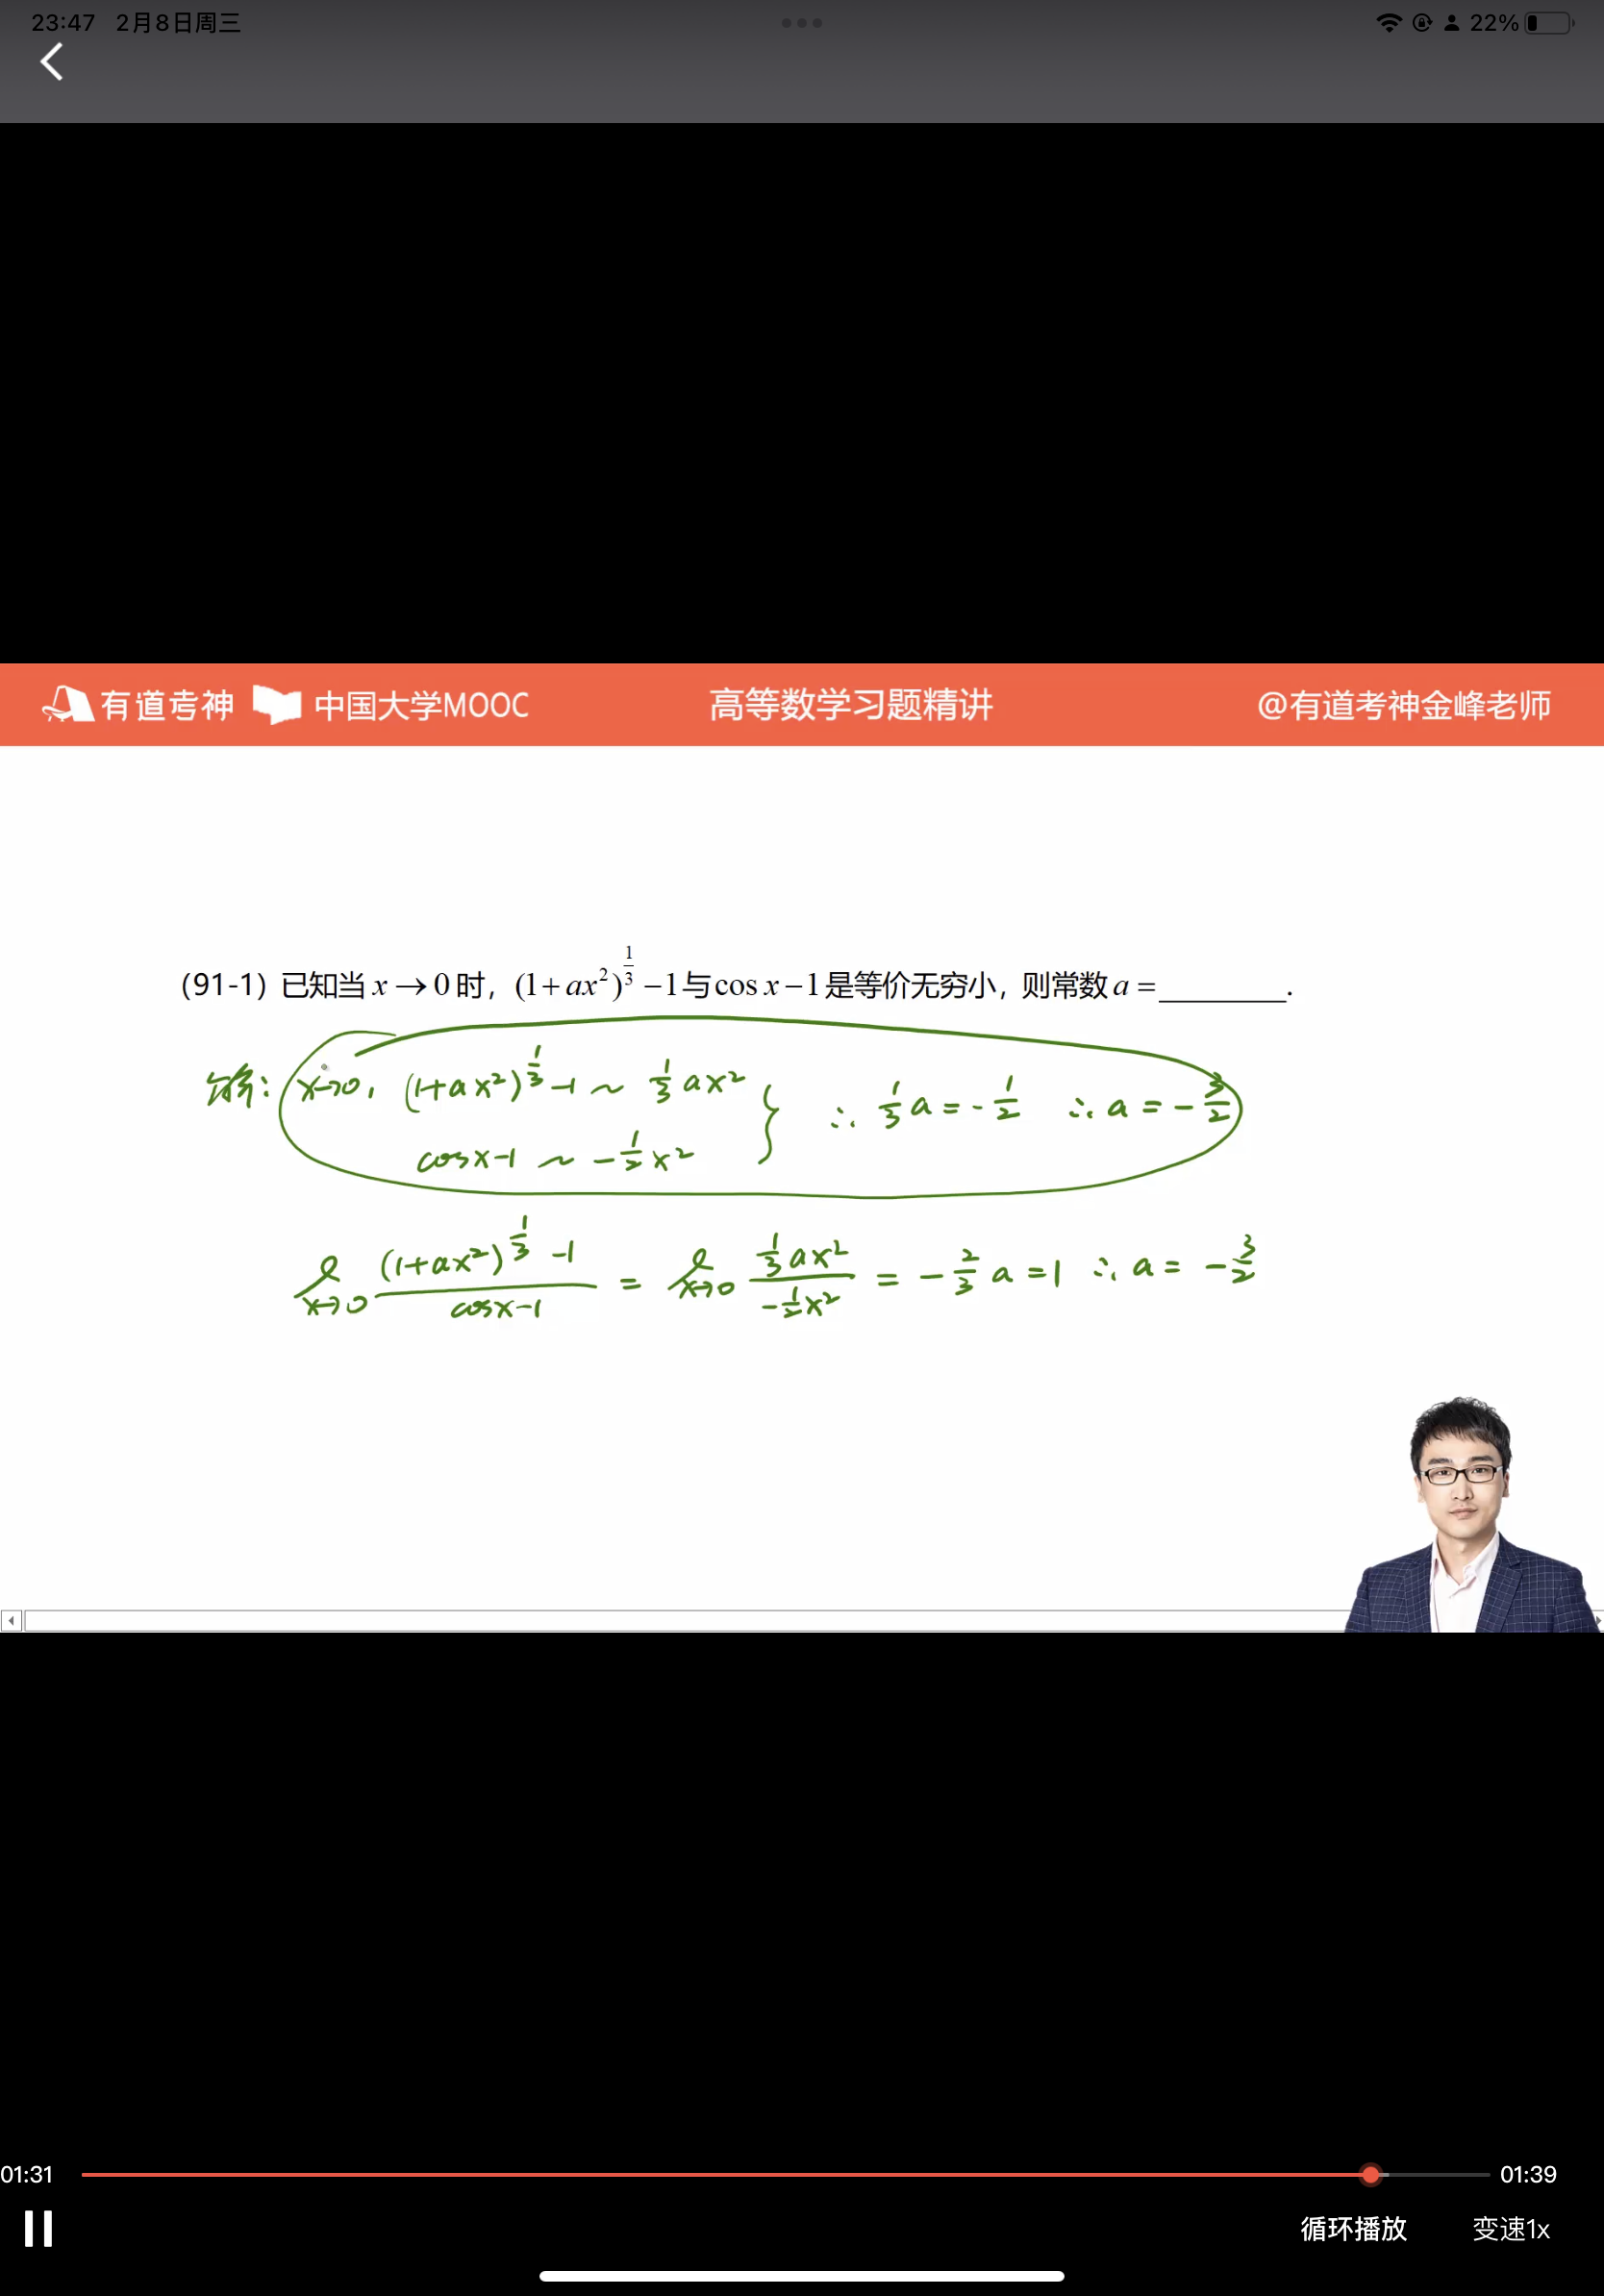 23:47 2月8日周三 22%
有道考神 中国大学MOOC 高等数学习题精讲 @有道考神金峰老师
(91-1) 已知当 x→0 时, (1+ax²)^(1/3) −1 与 cos x−1 是等价无穷小, 则常数 a = ________.
解: x→0, (1+ax²)^(1/3) −1 ~ 1/3 ax² } ∴ 1/3 a = −1/2 ∴ a = −3/2
cosx−1 ~ −1/2 x²
l x→0 ((1+ax²)^(1/3) −1)/(cosx−1) = l x→0 (1/3 ax²)/(−1/2 x²) = −2/3 a = 1 ∴ a = −3/2
01:31 01:39
循环播放 变速1x